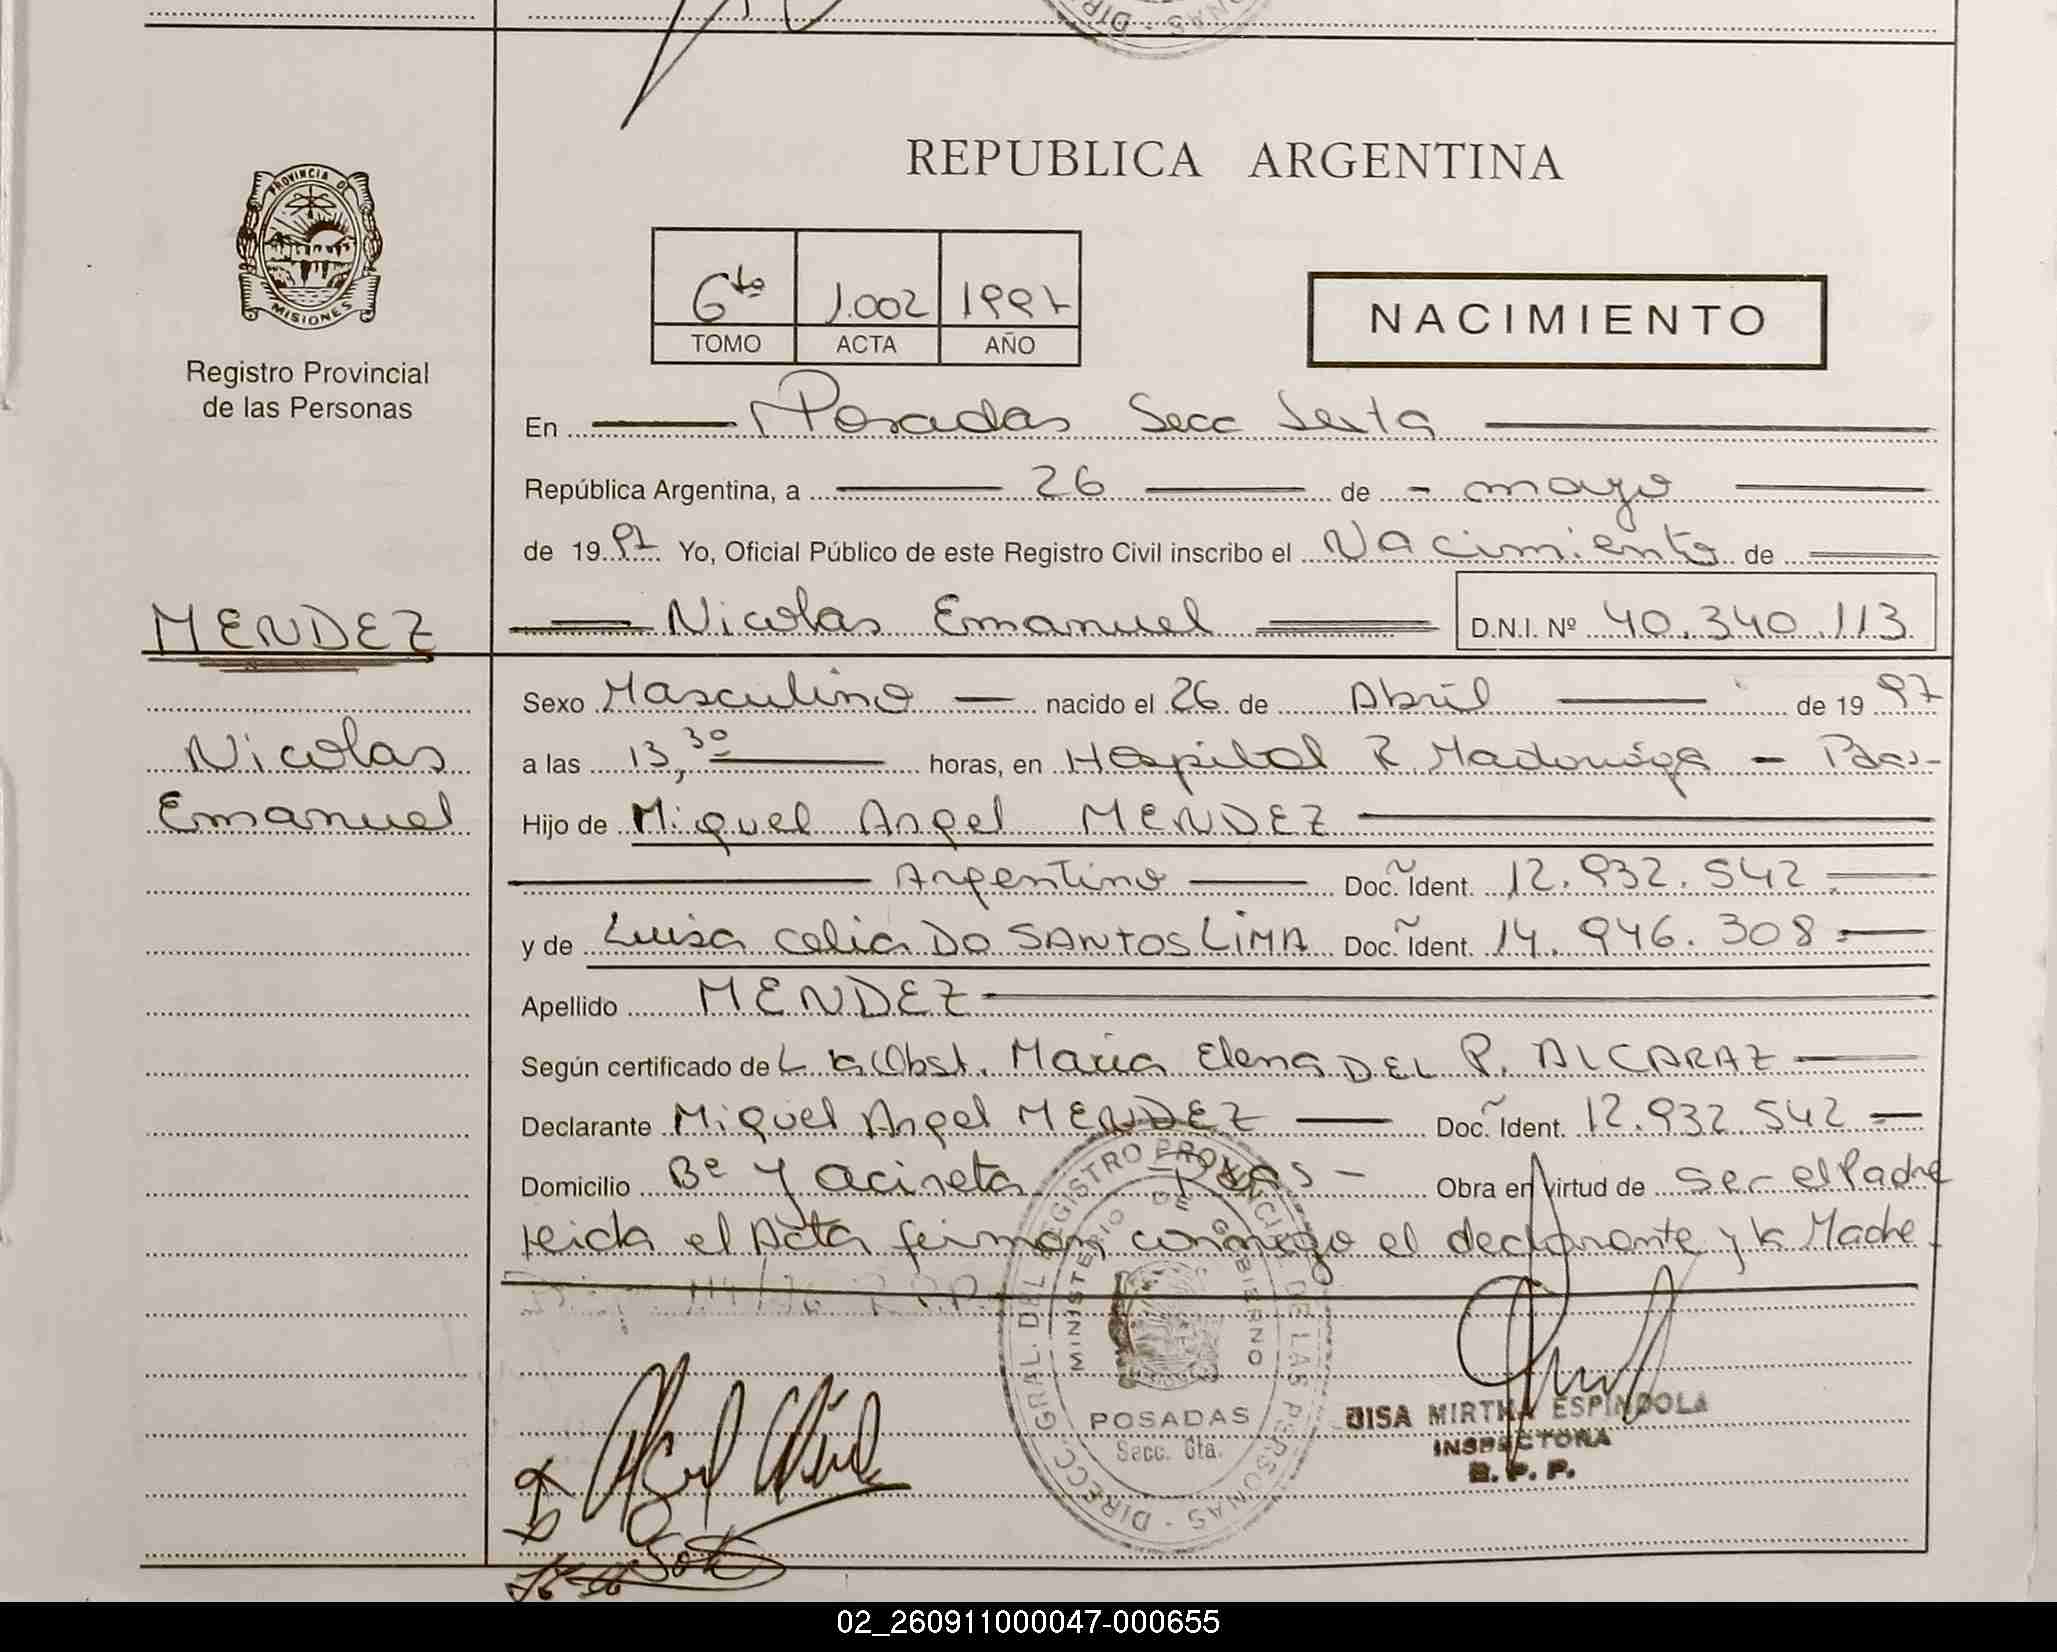 REPUBLICA ARGENTINA
PROVINCIA DE
MISIONES
Registro Provincial
de las Personas
6to 1.002 1997
TOMO ACTA AÑO
NACIMIENTO
En Posadas Secc Sexta
República Argentina, a 26 de mayo
de 1997 Yo, Oficial Público de este Registro Civil inscribo el Nacimiento de
MENDEZ
Nicolas Emanuel D.N.I. Nº 40.340.113
Sexo Masculino nacido el 26 de Abril de 1997
Nicolas
a las 13,30 horas, en Hospital R. Madariaga - Pdas-
Emanuel
Hijo de Miguel Angel MENDEZ
Argentino Doc. Ident. 12.932.542
y de Luisa Celia DO SANTOS LIMA Doc. Ident. 14.946.308
Apellido MENDEZ
Según certificado de la Obst. Maria Elena DEL P. ALCARAZ
Declarante Miguel Angel MENDEZ Doc. Ident. 12.932.542
Domicilio Bº Yacireta Pdas - Obra en virtud de ser el Padre
Leida el Acta firman conmigo el declarante y la Madre.
DIRECC. GRAL. DEL REGISTRO PROVINCIAL DE LAS PERSONAS
MINISTERIO DE GOBIERNO
POSADAS
Secc. 6ta.
MIRTHA ESPINDOLA
INSPECTORA
R. P. P.
02_260911000047-000655